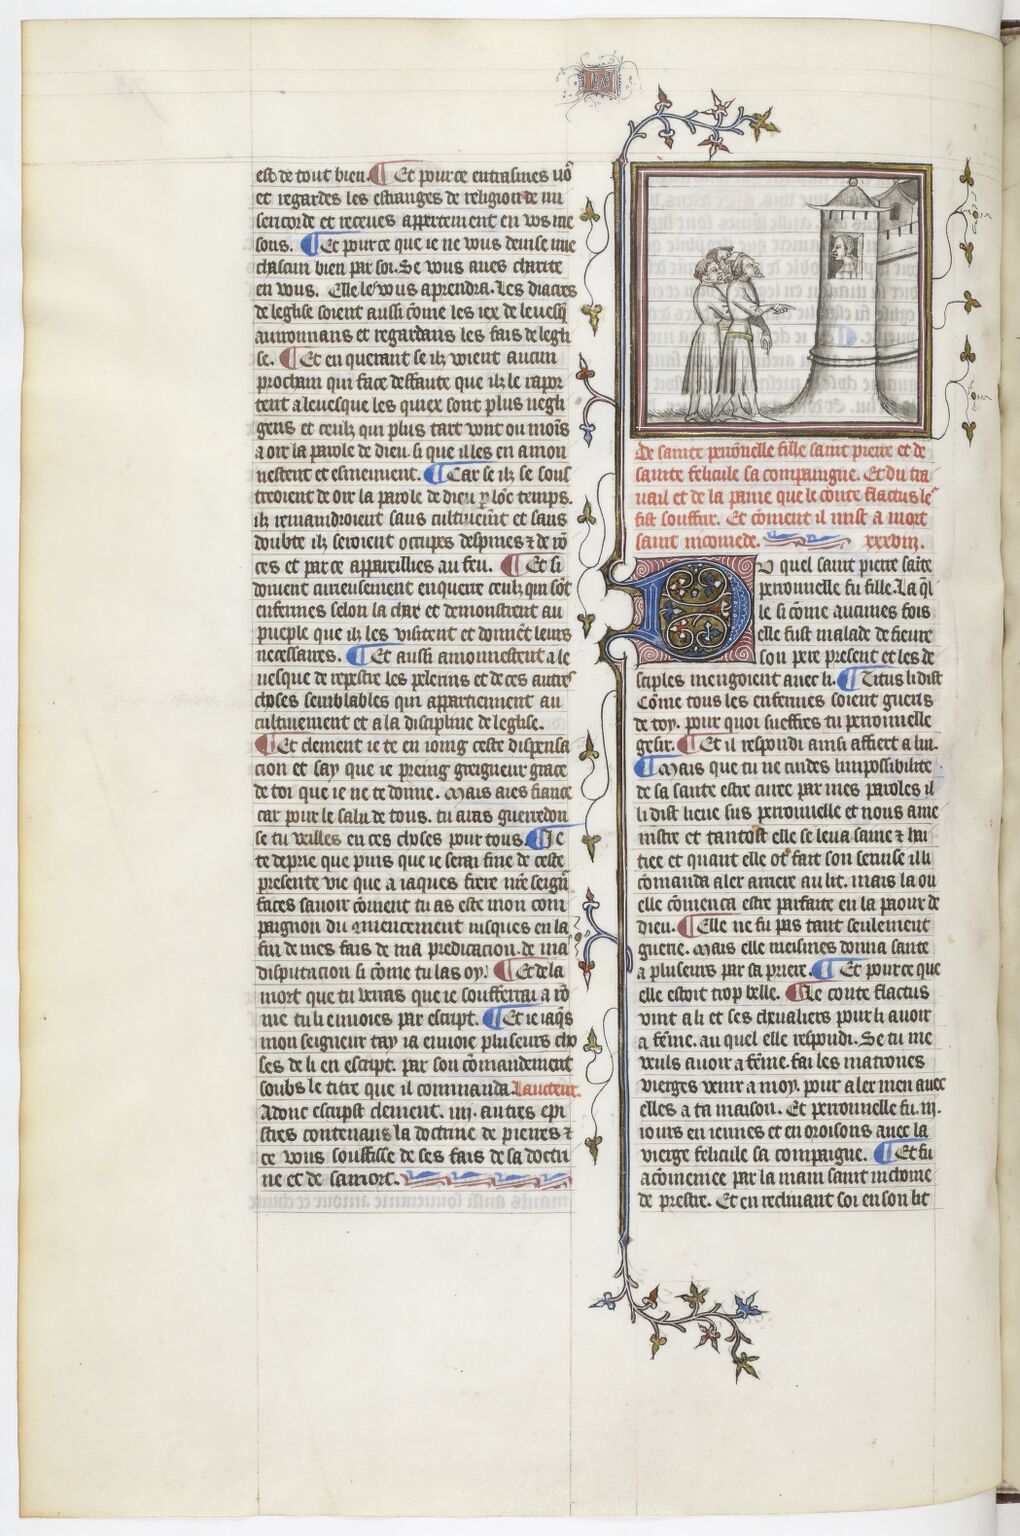 est de tout bien. Et pource entrasmes uo᷒
et regardes les estranges de religion de mi
sericorde et receues appertement en vos me
sons. Et pource que ie ne vous deuise mie
chascun bien par soi. Se vous aues charite
en vous. Elle le vous aprendra. Les diacres
de leglise soient aussi cõme les iex de leuesq̃
auironnans et regardans les fais de legli
se. Et en querant se ilz voient aucun
prochain qui face deffaute que ilz le rapor
tent a leuesque les quiex sont plus negli
gens et ceulz qui plus tart vont ou mois
a oir la parole de dieu si que il les en amon
nestent et esmeuuent. Car se ilz se sous
treoient de oir la parole de dieu p lõc temps.
ilz remaindroient sans cultiuem̃t et sans
doubte ilz seroient occupes despines ⁊ de rõ
ces et par ce appareillies au feu. Et si
doiuent curieusement enquerre ceulz qui sõt
enfermes selon la char et demonstrent au
pueple que ilz les visitent et donnẽt leurs
necessaires. Et aussi amonnestent a le
uesque de repestre les pelerins et de ces autres
choses semblables qui appartiennent au
cultiuement et a la discipline de leglise.
Et clement ie te en ioing ceste dispensa
cion et say que ie preing greigneur grace
de toi que ie ne te donne. Mais aies fiance
car pour le salu de tous. tu aras guerredon
se tu veilles en ces choses pour tous. Ie
te deprie que puis que ie serai fine de ceste
presente vie que a iaques frere nr̃e seigñ
faces sauoir cõment tu as este mon com
paignon du cõmencement iusques en la
fin de mes fais de ma predicacion. de ma
disputacion si cõme tu las oy. Et de la
mort que tu verras que ie soufferrai a rõ
me tu li enuoies par escript. Et ie iaq̃s
mon seigneur tay ia enuoie pluseurs cho
ses de li en escript. par son cõmandement
soubs le titre que il commanda. Lauteur.
Adonc escript clement. iiij. autres epi
stres contenans la doctrine de pierres ⁊
ce vous souffisse de ses fais de sa doctri
ne et de sa mort.
De sainte perrõnelle fille saint pierre et de
sainte felicule sa compaingne. Et du tra
uail et de la paine que le conte flactus le᷒
fist souffrir. Et cõment il mist a mort
saint nicomede. xxxviij.
Du quel saint pierre saĩte
perronnelle fu fille. La q̃l
le si cõme aucunes fois
elle fust malade de fieure
son pere present et les de
sciples mengoient auec li. Titus li dist
Cõme tous les enfermes soient gueris
de toy. pour quoi sueffres tu perronnelle
gesir. Et il respondi ainsi affiert a lui.
Mais que tu ne cuides limpossibilite
de sa sante estre curee par mes paroles il
li dist lieue sus perronnelle et nous ame
nistre et tantost elle se leua saine ⁊ hai
tiee et quant elle ot fait son seruise il li
cõmanda aler arriere au lit. mais la ou
elle cõmenca estre parfaite en la paour de
dieu. Elle ne fu pas tant seulement
guerie. Mais elle meismes donna sante
a pluseurs par sa priere. Et pource que
elle estoit trop belle. Le conte flactus
vint a li et ses cheualiers pour li auoir
a fẽme. au quel elle respondi. Se tu me
veuls auoir a fẽme. fai les matrones
vierges venir a moy. pour aler men auec
elles a ta maison. Et perronnelle fu .iij.
iours en ieunes et en oroisons auec la
vierge felicule sa compaigne. Et fu
acõmeniee par la main saint nichome
de prestre. Et en reclinant soi en son lit